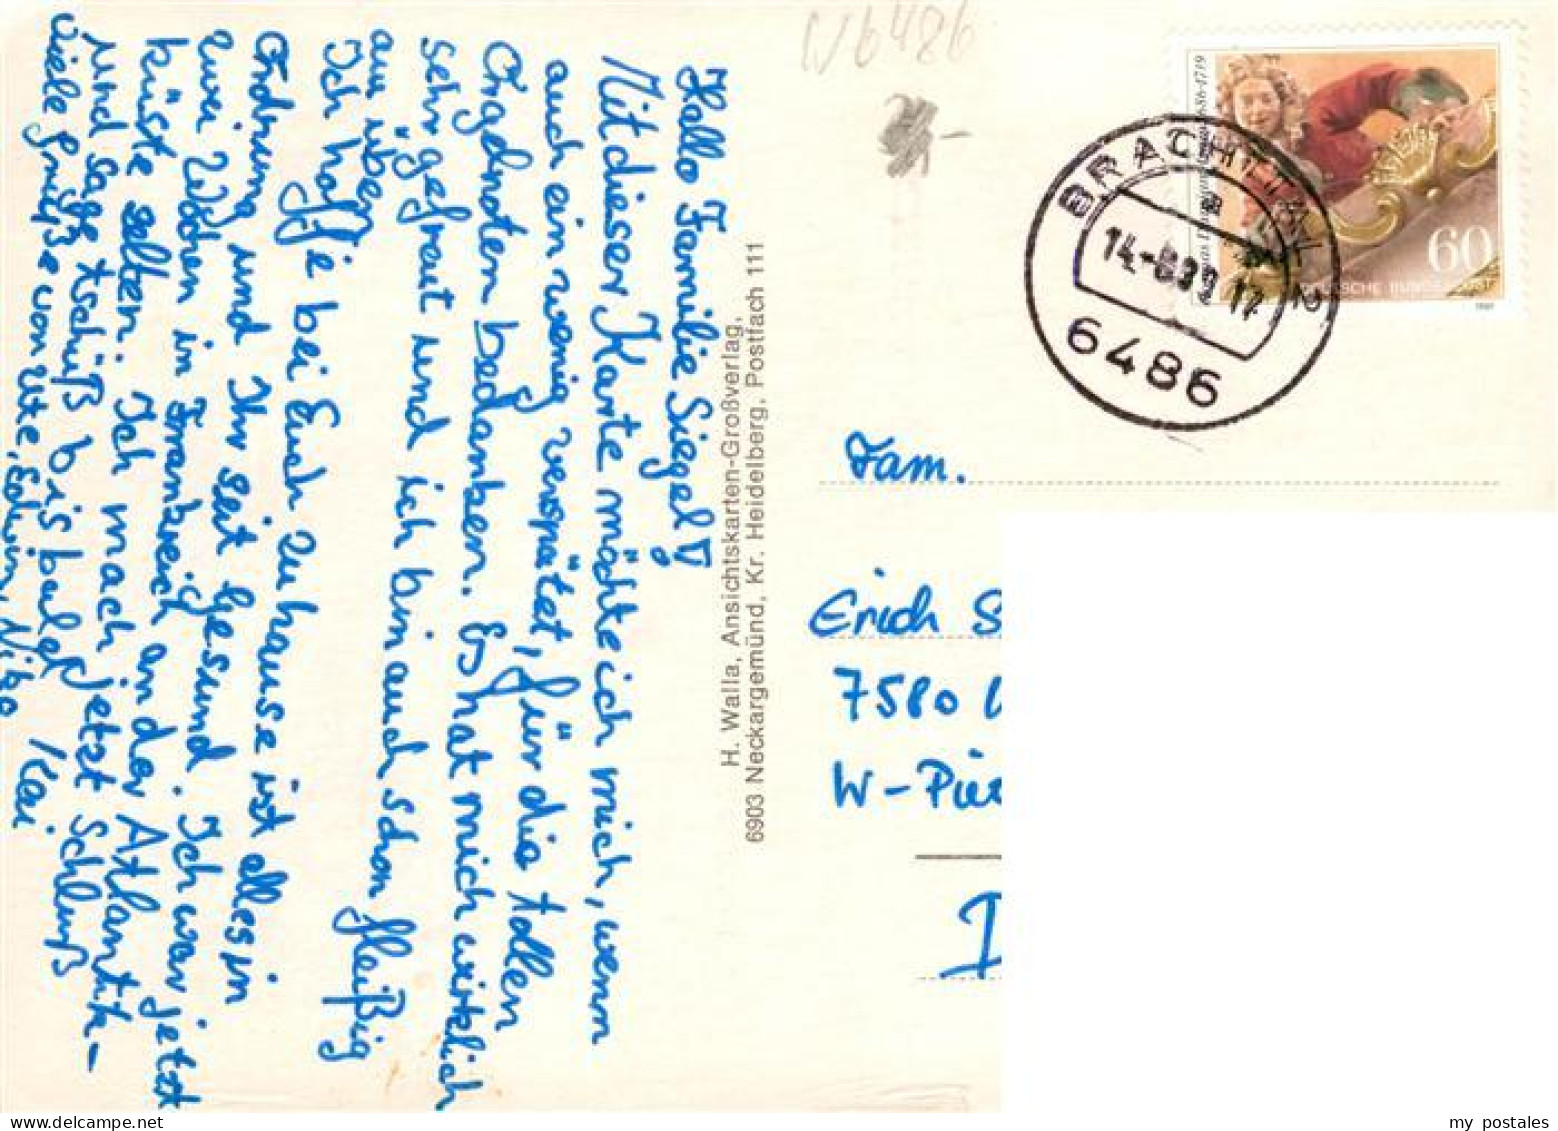 Hallo Familie Siegel!
Mit dieser Karte möchte ich mich, wenn
auch ein wenig verspätet, für die tollen
bedanken. Es hat mich wirklich
sehr gefraut und ich bin auch schon fleißig
am üben.
Ich hoffe bei Euch zuhause ist alles in
Ordnung und Ihr seit gesund. Ich war jetzt
zwei Wochen in Frankreich an der Atlantik-
küste selten. Ich mach jetzt Schluß
und sage tschüß bis bald
viele Grüße von Ute, Edwin, Kai
H. Walla, Ansichtskarten-Großverlag,
6903 Neckargemünd, Kr. Heidelberg, Postfach 111
N6486
BRACHTTAL 2
14.-8.89.17
6486
86-1719
60
SCHE BUNDESPOST
Fam.
Erich S
7580
W-Pie
my postales